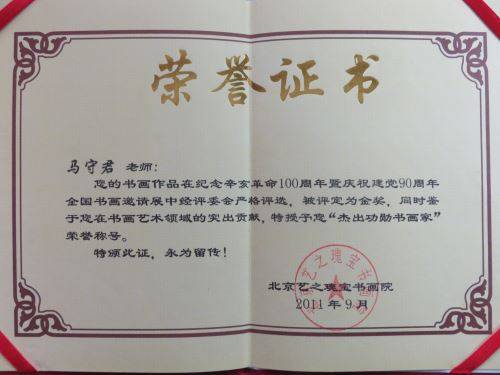 荣誉证书
马守君 老师：
您的书画作品在纪念辛亥革命100周年暨庆祝建党90周年
全国书画邀请展中经评委会严格评选，被评定为金奖，同时鉴
于您在书画艺术领域的突出贡献，特授予您“杰出功勋书画家”
荣誉称号。
特颁此证，永为留传！
北京艺之瑰宝书画院
2011年9月
北京艺之瑰宝书画院